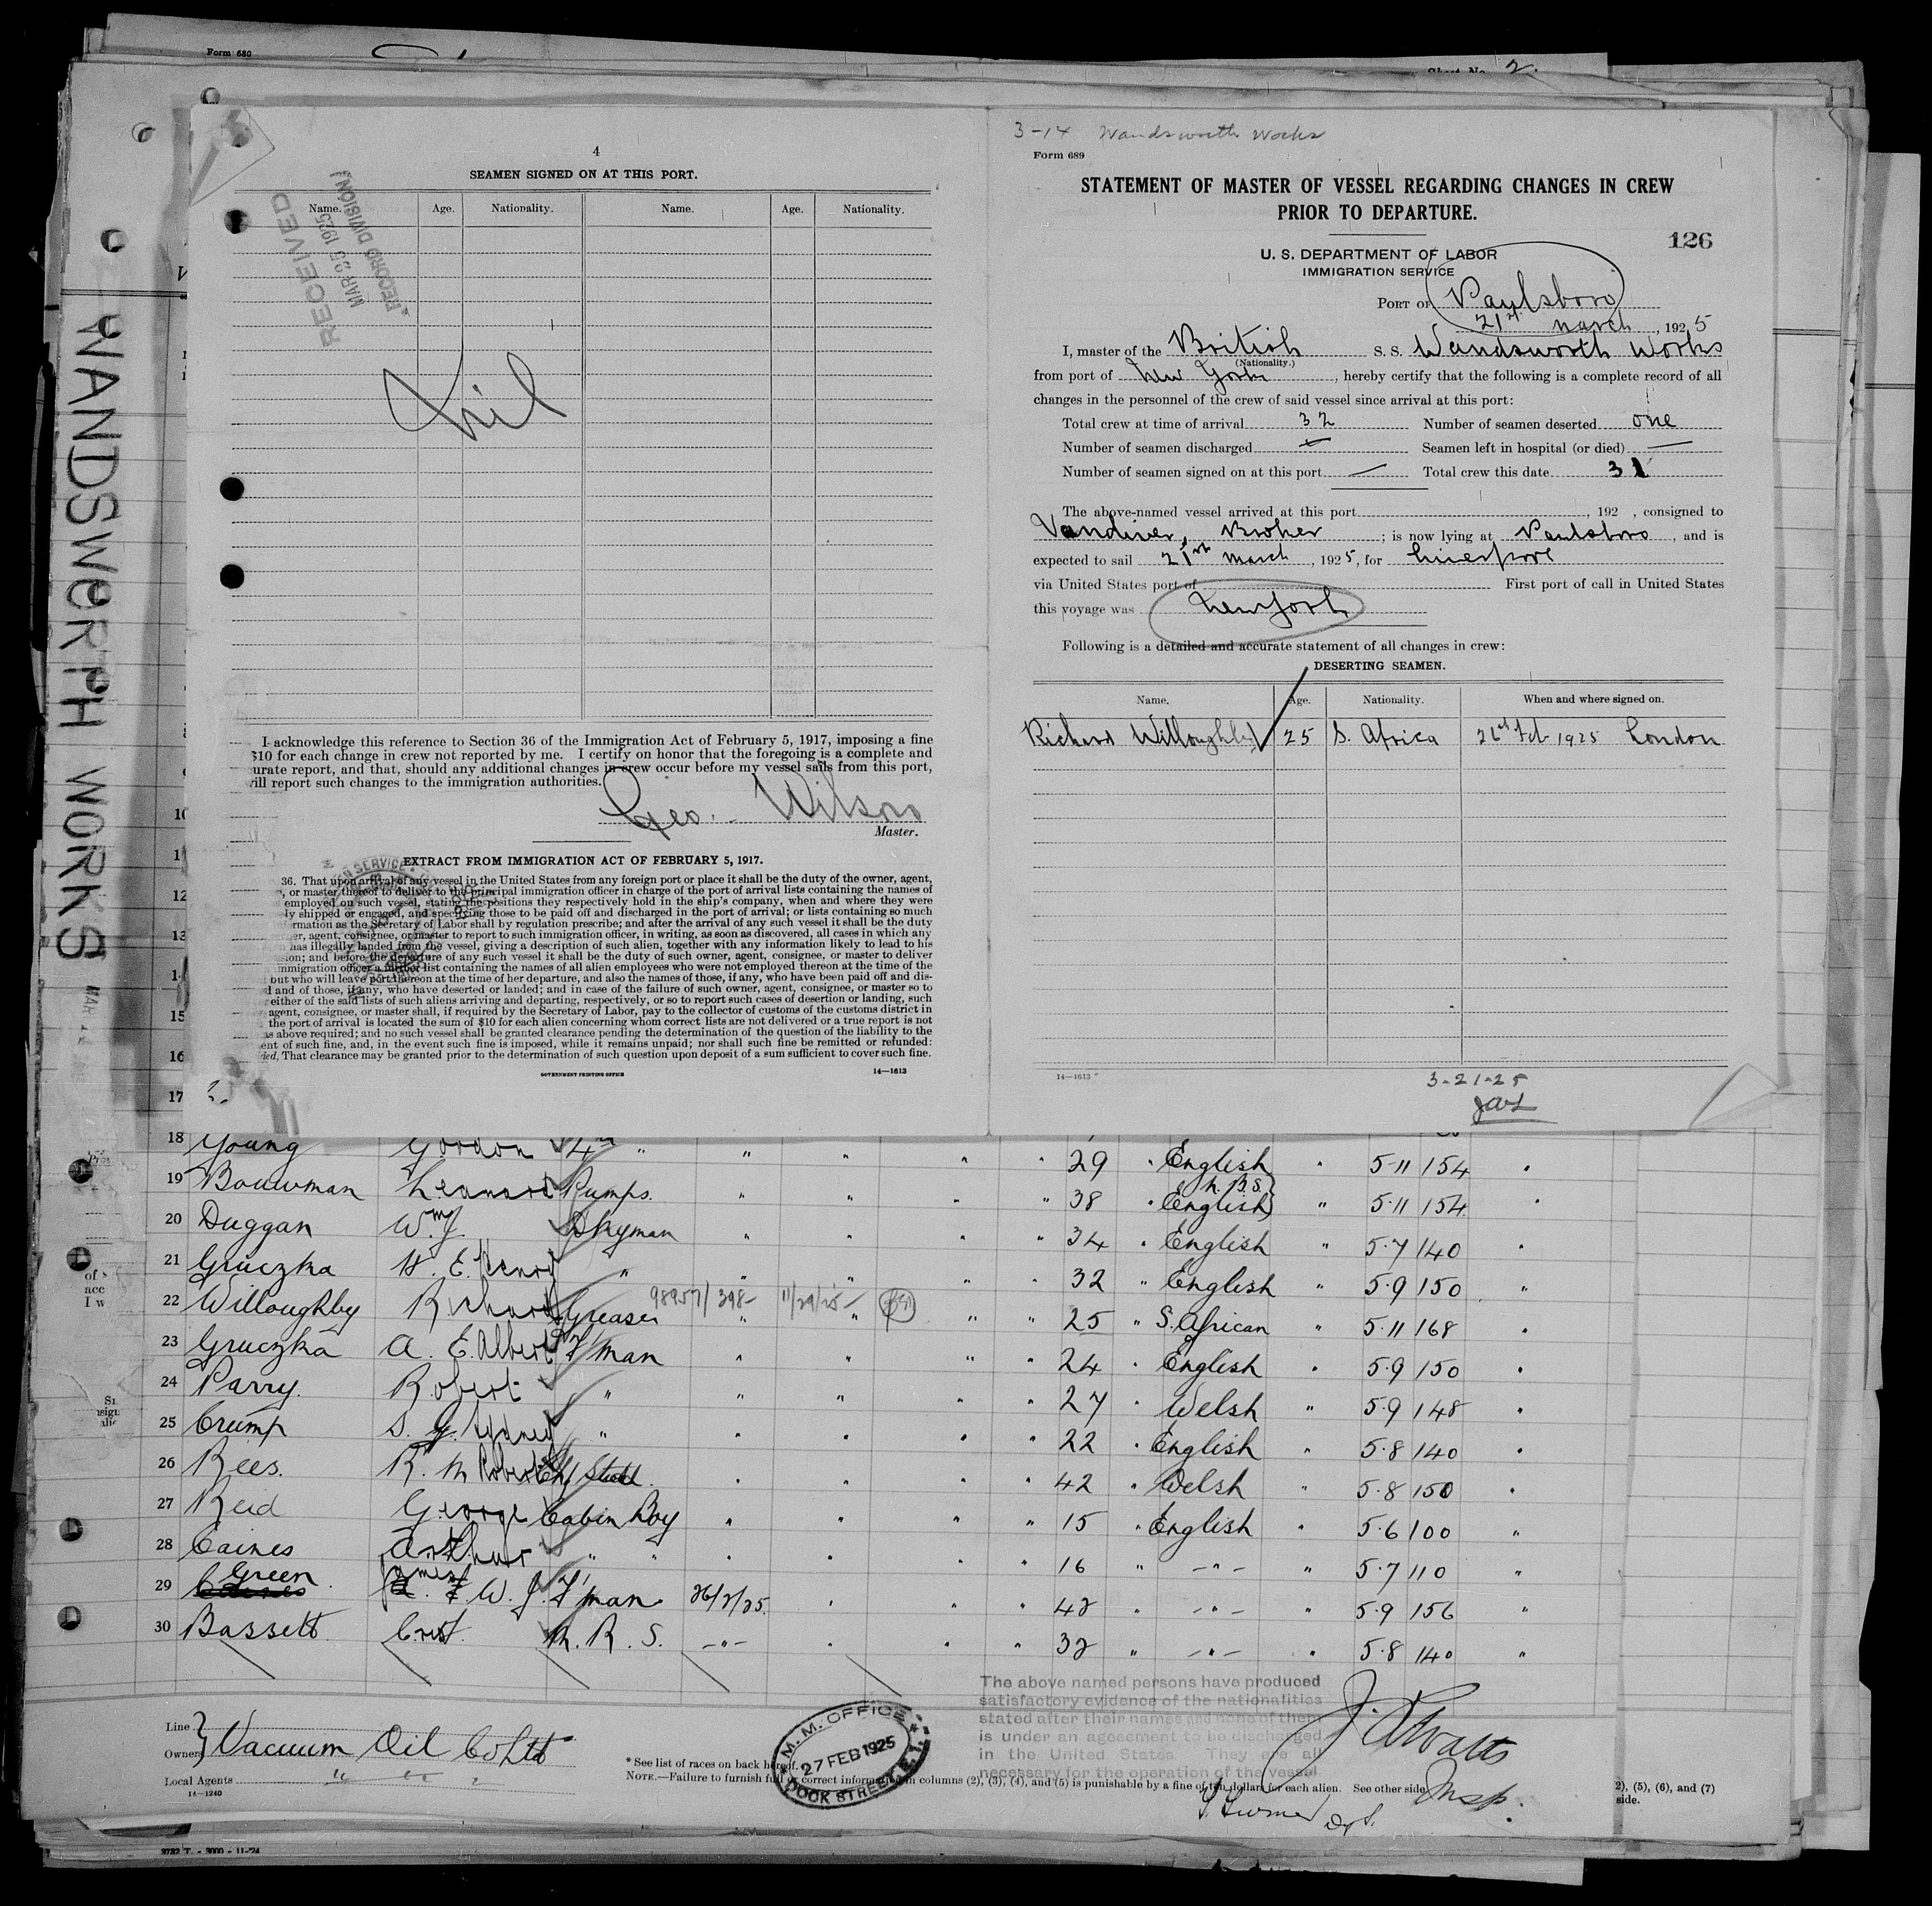 Form 680
Sheet No. 2.
WANDSWORTH WORKS
4
SEAMEN SIGNED ON AT THIS PORT.
Name. Age. Nationality. Name. Age. Nationality.
RECEIVED
MAR 25 1925
RECORD DIVISION
Nil
I acknowledge this reference to Section 36 of the Immigration Act of February 5, 1917, imposing a fine
$10 for each change in crew not reported by me. I certify on honor that the foregoing is a complete and
urate report, and that, should any additional changes in crew occur before my vessel sails from this port,
ill report such changes to the immigration authorities.
Geo. Wilson
Master.
EXTRACT FROM IMMIGRATION ACT OF FEBRUARY 5, 1917.
36. That upon arrival of any vessel in the United States from any foreign port or place it shall be the duty of the owner, agent,
, or master thereof to deliver to the principal immigration officer in charge of the port of arrival lists containing the names of
employed on such vessel, stating the positions they respectively hold in the ship's company, when and where they were
ly shipped or engaged, and specifying those to be paid off and discharged in the port of arrival; or lists containing so much
ormation as the Secretary of Labor shall by regulation prescribe; and after the arrival of any such vessel it shall be the duty
er, agent, consignee, or master to report to such immigration officer, in writing, as soon as discovered, all cases in which any
has illegally landed from the vessel, giving a description of such alien, together with any information likely to lead to his
sion; and before the departure of any such vessel it shall be the duty of such owner, agent, consignee, or master to deliver
mmigration officer a further list containing the names of all alien employees who were not employed thereon at the time of the
but who will leave port thereon at the time of her departure, and also the names of those, if any, who have been paid off and dis-
d and of those, if any, who have deserted or landed; and in case of the failure of such owner, agent, consignee, or master so to
either of the said lists of such aliens arriving and departing, respectively, or so to report such cases of desertion or landing, such
agent, consignee, or master shall, if required by the Secretary of Labor, pay to the collector of customs of the customs district in
the port of arrival is located the sum of $10 for each alien concerning whom correct lists are not delivered or a true report is not
as above required; and no such vessel shall be granted clearance pending the determination of the question of the liability to the
ent of such fine, and, in the event such fine is imposed, while it remains unpaid; nor shall such fine be remitted or refunded:
ded, That clearance may be granted prior to the determination of such question upon deposit of a sum sufficient to cover such fine.
GOVERNMENT PRINTING OFFICE 14—1613
3-14 Wandsworth Works
Form 689
STATEMENT OF MASTER OF VESSEL REGARDING CHANGES IN CREW
PRIOR TO DEPARTURE.
126
U. S. DEPARTMENT OF LABOR
IMMIGRATION SERVICE
PORT OF Paulsboro
21st March, 1925
I, master of the British S. S. Wandsworth Works
(Nationality.)
from port of New York, hereby certify that the following is a complete record of all
changes in the personnel of the crew of said vessel since arrival at this port:
Total crew at time of arrival 32 Number of seamen deserted one
Number of seamen discharged — Seamen left in hospital (or died) —
Number of seamen signed on at this port — Total crew this date 31
The above-named vessel arrived at this port , 192 , consigned to
Vandiver, Broker ; is now lying at Paulsboro , and is
expected to sail 21st March , 1925, for Liverpool
via United States port of First port of call in United States
this voyage was New York
Following is a detailed and accurate statement of all changes in crew:
DESERTING SEAMEN.
Name. Age. Nationality. When and where signed on.
Richard Willoughby 25 S. Africa 26th Feb 1925 London
14—1613
3-21-25
10
1
12
13
14
15
16
17
18 Young Gordon 4th " " " " " 29 " English " 5-11 154 "
19 Bouwman Leonard Pumps. " " " " 38 " English " 5.11 154 "
20 Duggan Wm J. Dkyman " " " " 34 " English " 5.7 140 "
21 Gruczka H. E. Henry " " " " " 32 " English " 5.9 150 "
22 Willoughby Richard Greaser 98957/398 11/29/25 " " " " 25 " S. African " 5.11 168 "
23 Gruczka A. E. Albert F'man " " " " 24 " English " 5.9 150 "
24 Parry. Robert " " " " " 27 " Welsh " 5.9 148 "
25 Crump S. G. Sydney " " " " " 22 " English " 5.8 140 "
26 Rees. R. M Robert Chf Stwd. " " " " 42 " Welsh " 5.8 150 "
27 Reid George Cabin Boy " " " " 15 " English " 5.6 100 "
28 Caines Arthur " " " " " " 16 " —"— " 5.7 110 "
29 Green James W. J. F'man 26/2/25. " " " 42 " —"— " 5.9 156 "
30 Bassett. M. R. S. —"— " " " 32 " —"— " 5.8 140 "
Line
Owners Vacuum Oil Co Ltd
Local Agents " " "
14—1240
* See list of races on back hereof.
NOTE.—Failure to furnish full or correct information in columns (2), (3), (4), and (5) is punishable by a fine of ten dollars for each alien. See other side.
M.M. OFFICE
27 FEB 1925
DOCK STREET, E.1.
The above named persons have produced
satisfactory evidence of the nationalities
stated after their names and none of them
is under an agreement to be discharged
in the United States. They are all
necessary for the operation of the vessel.
Insp.
2), (5), (6), and (7)
side.
3732 T. - 3000 - 11-'24